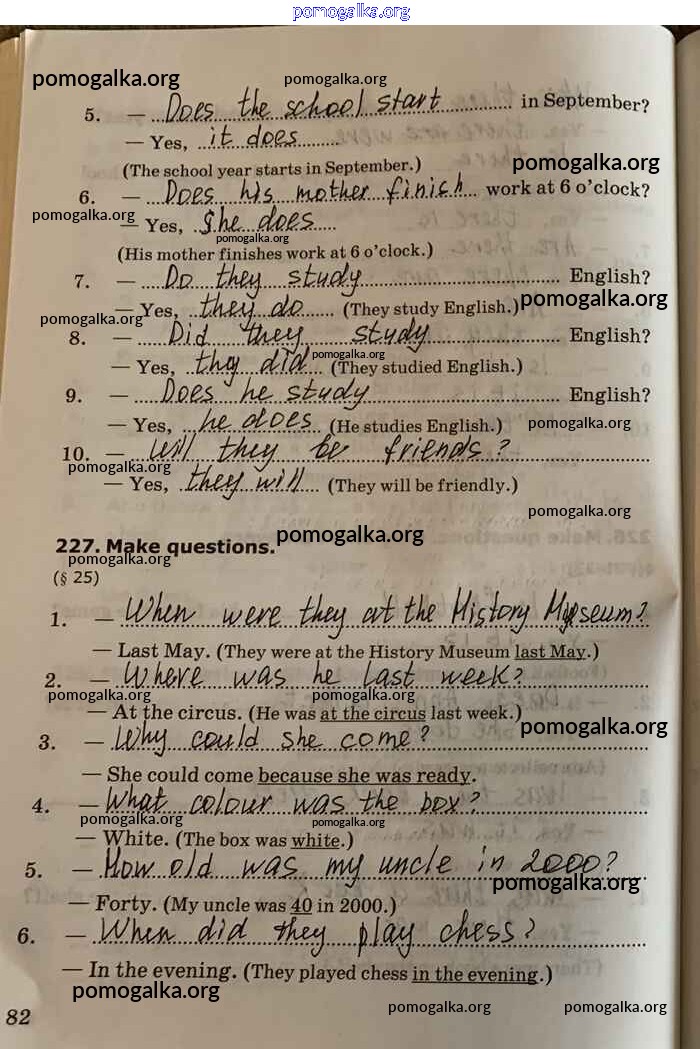 pomogalka.org
pomogalka.org pomogalka.org
5. — Does the school start in September?
— Yes, it does
(The school year starts in September.) pomogalka.org
6. — Does his mother finish work at 6 o'clock?
pomogalka.org
— Yes, she does
pomogalka.org
(His mother finishes work at 6 o'clock.)
7. — Do they study English?
— Yes, they do (They study English.) pomogalka.org
pomogalka.org
8. — Did they study English?
pomogalka.org
— Yes, they did (They studied English.)
9. — Does he study English?
— Yes, he does (He studies English.) pomogalka.org
10. — Will they be friends?
pomogalka.org
— Yes, they will (They will be friendly.)
pomogalka.org
227. Make questions. pomogalka.org
pomogalka.org
(§ 25)
1. — When were they at the History Museum?
— Last May. (They were at the History Museum last May.)
2. — Where was he last week?
pomogalka.org pomogalka.org
— At the circus. (He was at the circus last week.)
pomogalka.org
3. — Why could she come?
— She could come because she was ready.
4. — What colour was the box?
pomogalka.org pomogalka.org
— White. (The box was white.)
5. — How old was my uncle in 2000?
pomogalka.org
— Forty. (My uncle was 40 in 2000.)
6. — When did they play chess?
— In the evening. (They played chess in the evening.)
pomogalka.org
pomogalka.org pomogalka.org
82